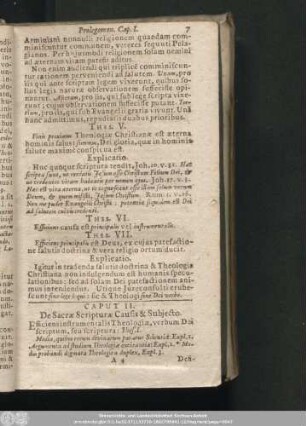 Prolegomen. Cap. I. 7
Arminiani nonnulli religionem quandam com-
miniscuntur communem, veteres sequuti Pela-
gianos. Per hujusmodi religionem solam omnibus
ad æternam vitam patere aditus.
Neq; enim audiendi qui triplicē comminiscun-
tur rationem perveniendi ad salutem. Unam, pro
iis qui ante scriptam legem vixerunt, quibus so-
lius legis naturæ observationem sufficere opi-
Aliam, pro iis, qui sub lege scripta vixe-
runt, cujus observationem sufficisse putant. Ter-
tiam, pro iis, qui sub Evangelii gratia vivunt. Una
hunc admittimus, repudiatis duabus prioribus.
THES. V.
Finis proximus Theologiæ Christianæ est æterna
hominis salus; summus, Dei gloria, quæ in homi-
salute maxime conspicua est.
Explicatio.
Huc quoque scriptura tendit, Joh. 20. v. 31. Hæc
scripta sunt, ut credatis Jesum esse Christum Filium Dei, &
ut credentes vitam habeatis per nomen ejus. Joh. 17. v. 3.
Hæc est vita æterna, ut te cognoscant esse illum solum verum
Deum, & quem misisti, Jesum Christum. Rom. 1. v. 16.
Non me pudet Evangelii Christi: potentia siquidem est Dei
ad salutem cuivis credenti.
THES. VI.
Efficiens causa est principalis vel instrumentalis.
THES. VII.
Efficiens principalis est Deus, ex cujus patefactio-
ne salutis doctrina & vera religio ortum ducit.
Explicatio.
Igitur in tradenda salutis doctrina & Theologia
Christiana non indulgendum est humanis specu-
lationibus: sed ad solam Dei patefactionem ani-
mus intendendus. Utique Jureconsulti erubes-
cunt sine lege loqui: sic & Theologi sine Dei verbo.
CAPUT II.
De Sacræ Scripturæ Causa & Subjecto.
Efficiens instrumentalis Theologiæ, verbum Dei
scriptum, seu scriptura; Thes. 1.
A 4 Deh-